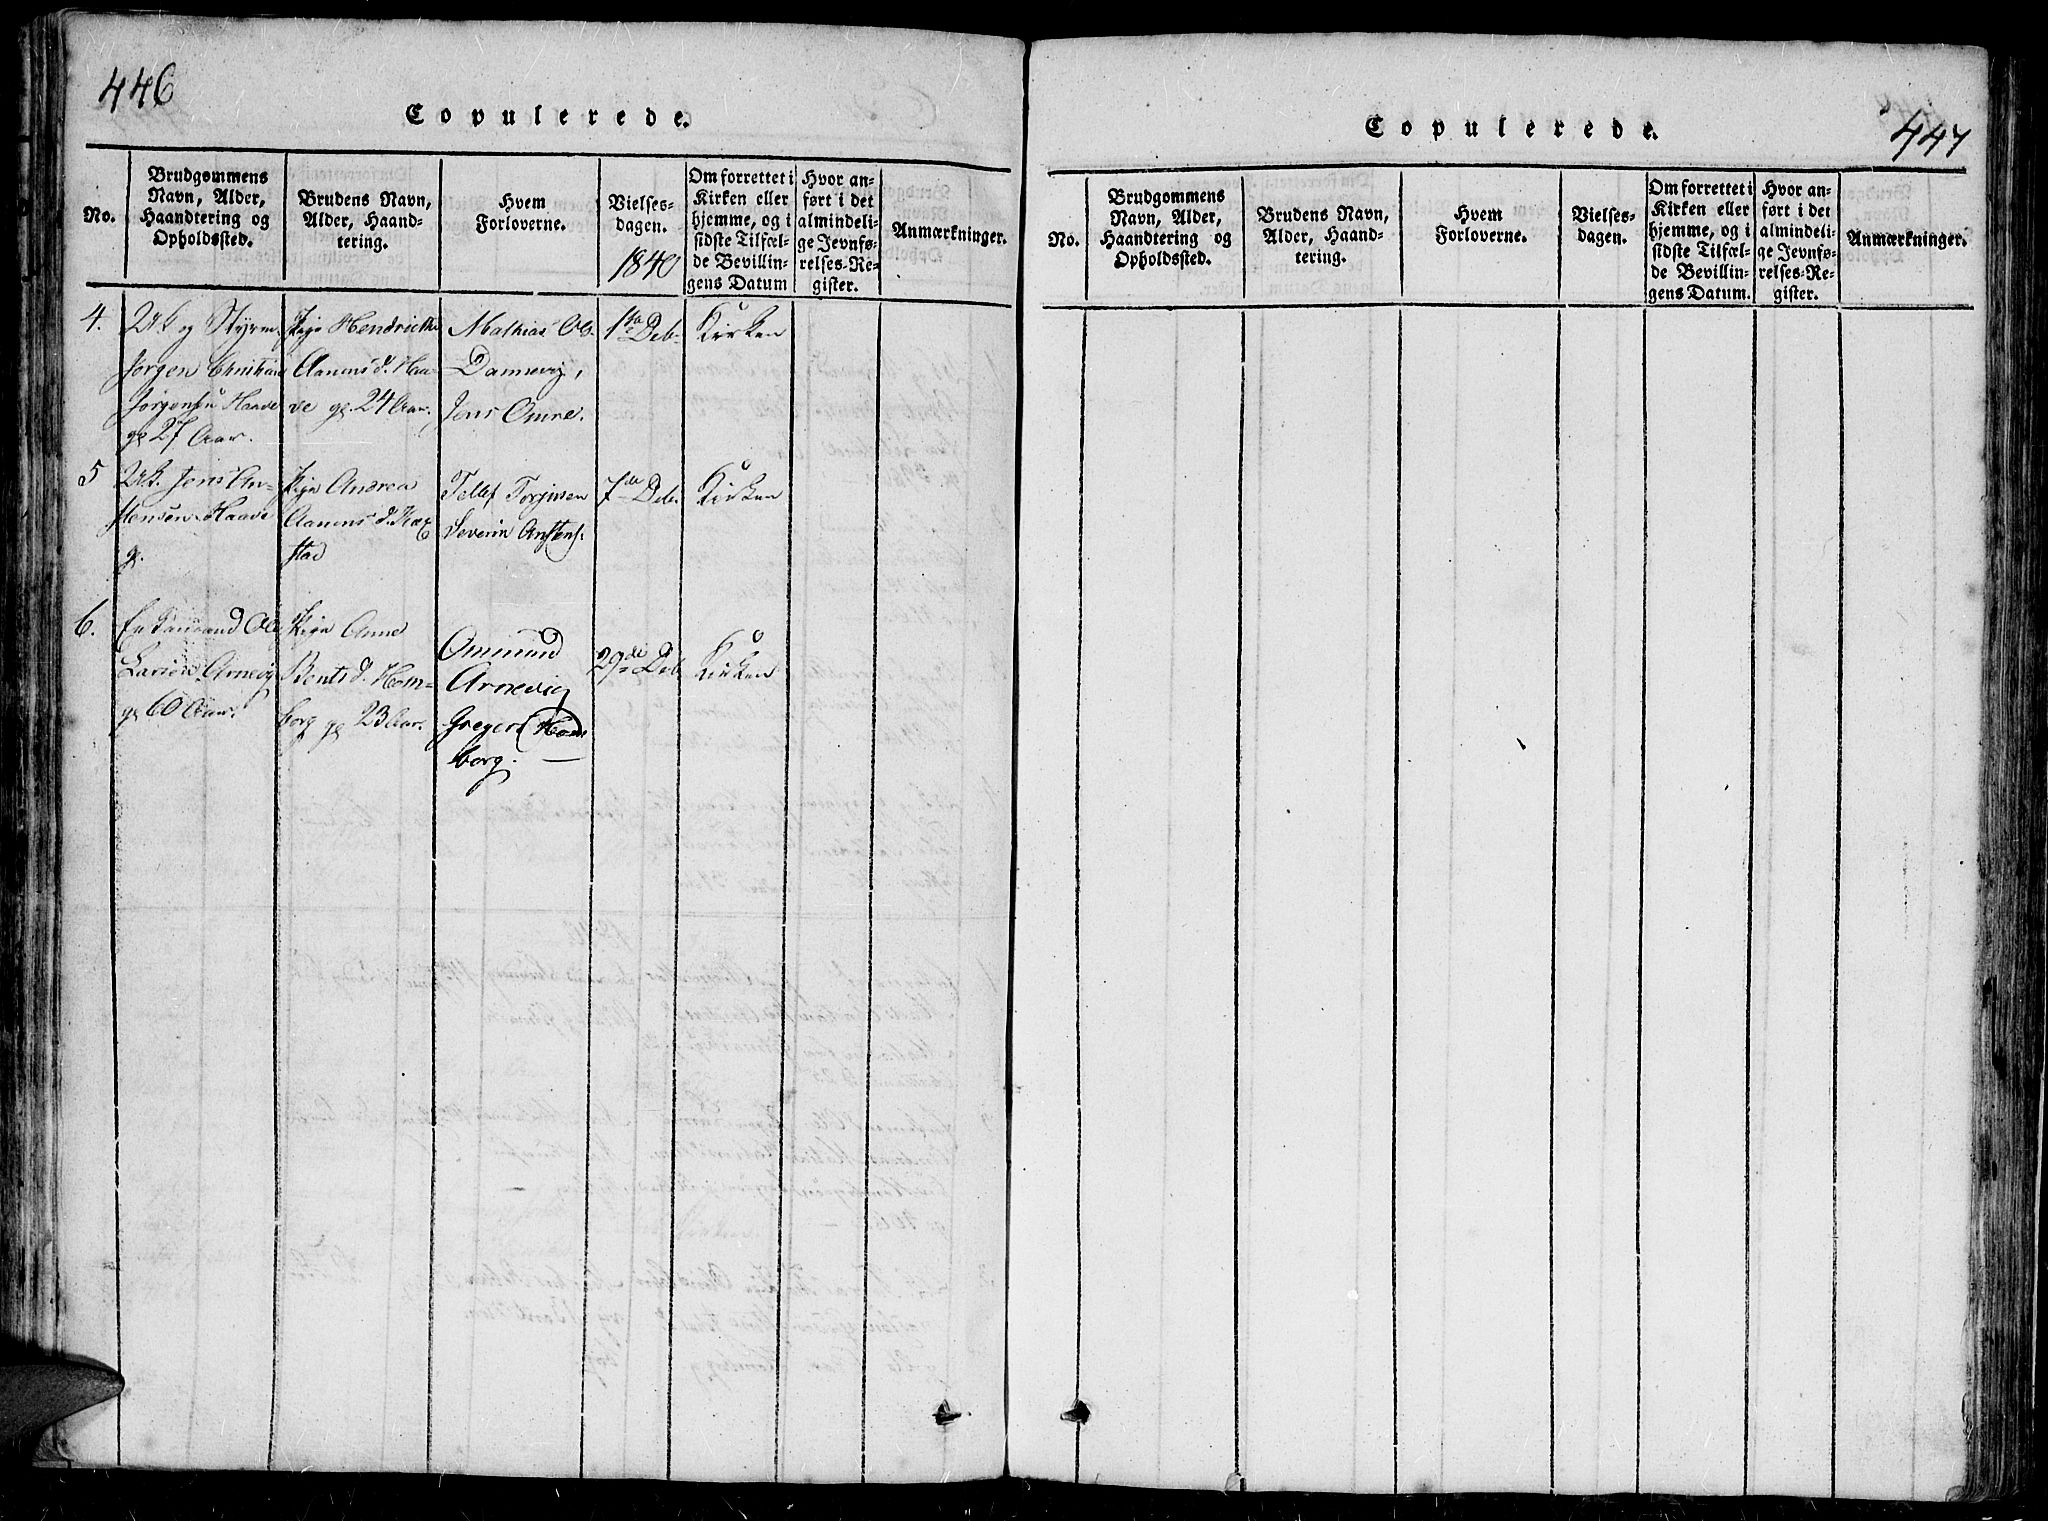 446
Copulerede.
No.
Brudgommens
Navn, Alder,
Haandtering og
Opholdssted.
Brudens Navn,
Alder, Haand-
tering.
Hvem
Forloverne.
Vielses-
dagen.
1840
Om forrettet i
Kirken eller
hjemme, og i
sidste Tilfæl-
de Bevillin-
gens Datum
Hvor an-
ført i det
almindeli-
ge Jevnfø-
relses-Re-
gister.
Anmærkninger.
4.
Uk og Styrm
Jørgen Christian
Jørgensen Haave
gl 27 Aar.
Pige Hendrikke
Aanens d. Haa-
ve gl. 24 Aar,
Mathias Ols.
Dannevig,
Jens Omre.
1ste Deb.
Kirken
5
Uk. Jens An-
stensen Haave
g.
Pige Andrea
Aanens d.
stad
Tellef Torjusen
Severin Anstens.
7de Deb.
Kirken
6.
Ole
Larsen Arnevig
gl 60 Aar.
Pige Anne
Bents d. Hom-
borg gl 23 Aar.
Ommund
Arnevig
Gregers Hom
borg.
29de Deb
Kirken
447
Copulerede.
No.
Brudgommens
Navn, Alder,
Haandtering og
Opholdssted.
Brudens Navn,
Alder, Haand-
tering.
Hvem
Forloverne.
Vielses-
dagen.
Om forrettet i
Kirken eller
hjemme, og i
sidste Tilfæl-
de Bevillin-
gens Datum.
Hvor an-
ført i det
almindeli-
ge Jevnfø-
relses-Re-
gister.
Anmærkninger.